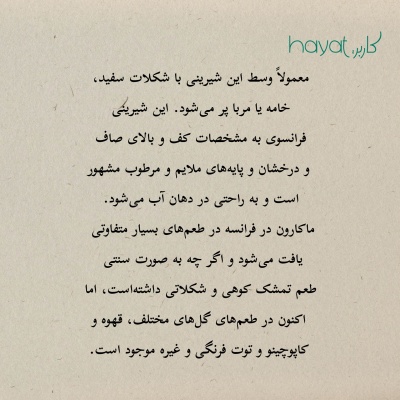 کاربر، hayat
معمولاً وسط این شیرینی با شکلات سفید،
خامه یا مربا پر می‌شود. این شیرینی
فرانسوی به مشخصات کف و بالای صاف
و درخشان و پایه‌های ملایم و مرطوب مشهور
است و به راحتی در دهان آب می‌شود.
ماکارون در فرانسه در طعم‌های بسیار متفاوتی
یافت می‌شود و اگر چه به صورت سنتی
طعم تمشک کوهی و شکلاتی داشته‌است، اما
اکنون در طعم‌های گل‌های مختلف، قهوه و
کاپوچینو و توت فرنگی و غیره موجود است.